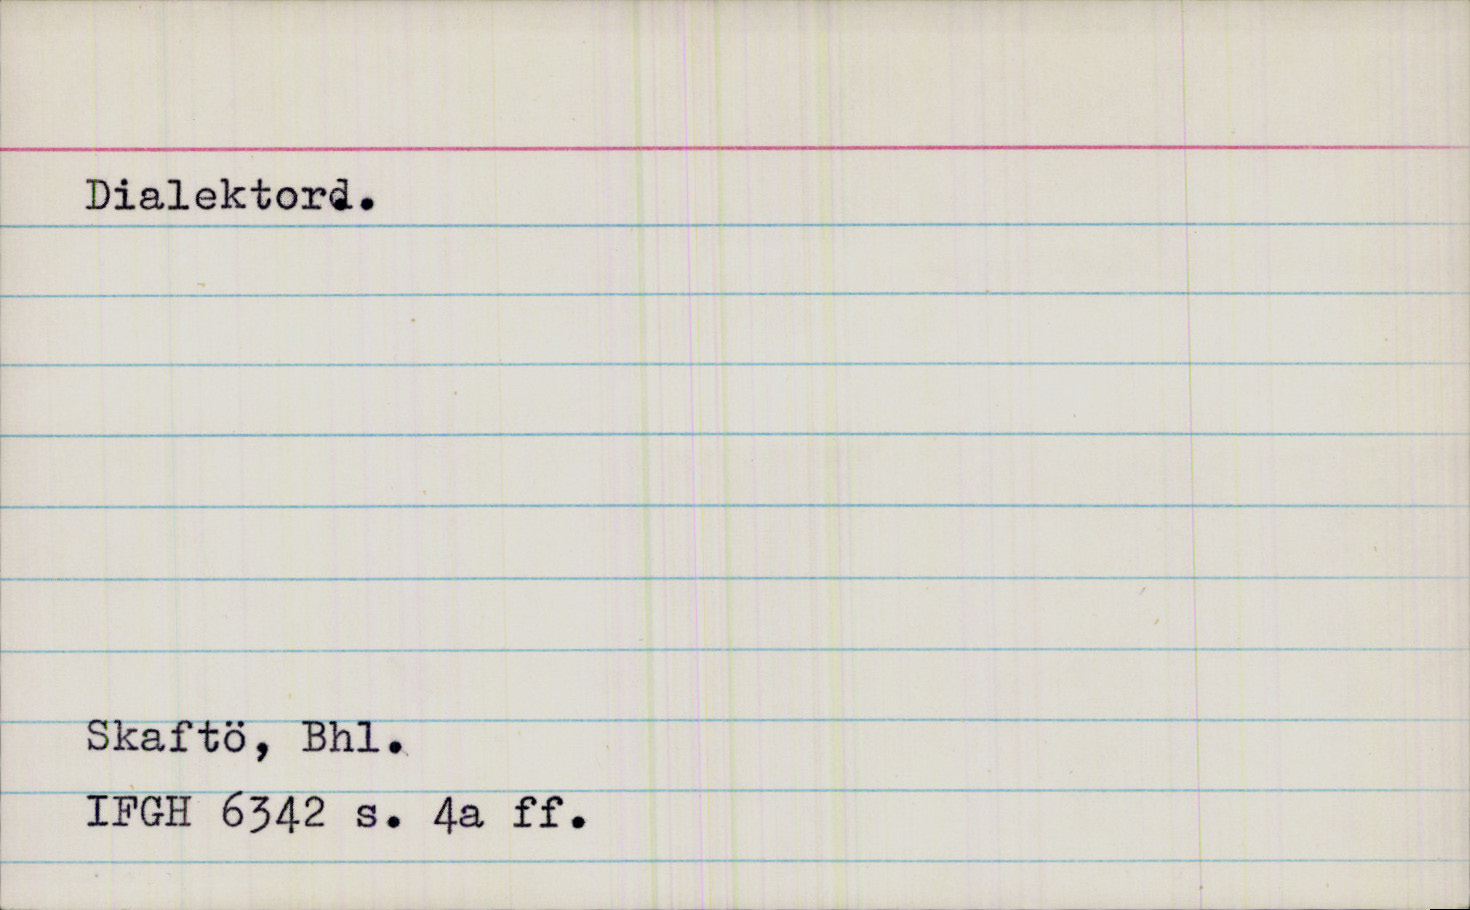 Dialektord.
Skaftö, Bhl.
IFGH 6342 s. 4a ff.